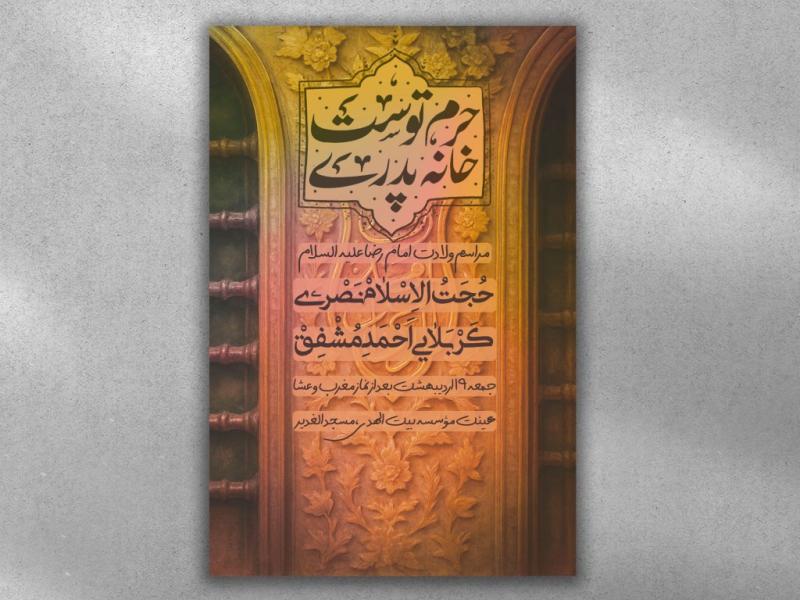 حرم توست
خانه پدرے
مراسم ولادت امام رضا علیه السلام
حُجَتُ الاِسْلاٰمْ نَصْرے
کَرْبَلایےاَحْمَدِمُشْفِقْ
جمعه ۱۹ اردیبهشت بعد از نماز مغرب و عشا
هیئت مؤسسه بیت الهدی، مسجد الغدیر